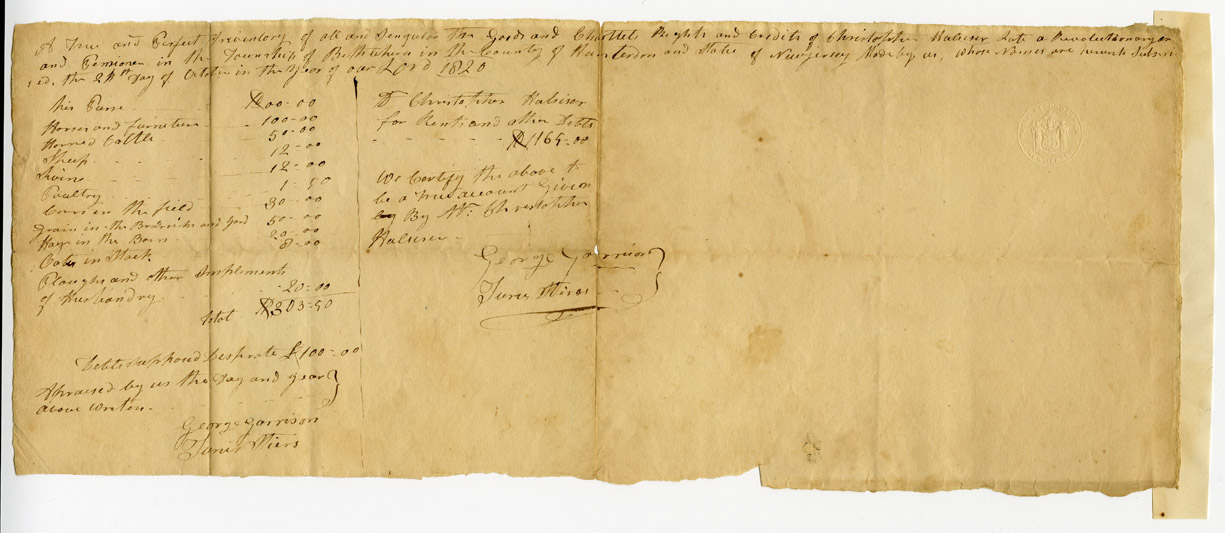 A True and Perfect Inventory of all and Singular The Goods and Chattels Rights and Credits of Christopher Halsiser Late a Revolutionary
and Pensioner in the Township of Bethlehem in the County of Hunterdon and State of Newjersey Made by us, whose Names are
the 24th Day of October in the Year of our Lord 1820
his Purse 00-00
Horses and furniture 100-00
Horned Cattle 50-00
Sheep 12-00
Swine 12-00
Poultry 1-50
Corn in the field 30-00
Grain in the and yard 50-00
Hay in the Barn 20-00
Oats in Stack 8-00
Ploughs and other Implements
of Husbandry 20-00
total 303-50
Debts supposed Desprate 100-00
Apraised by us the Day and year
above writen
George Garrison
Tunis Stiers
Christopher Halsiser
for Rent and other Debts
165-00
We Certify the above to
be a true account Given
by By Christopher
Halsiser
George Garrison
Tunis Stiers